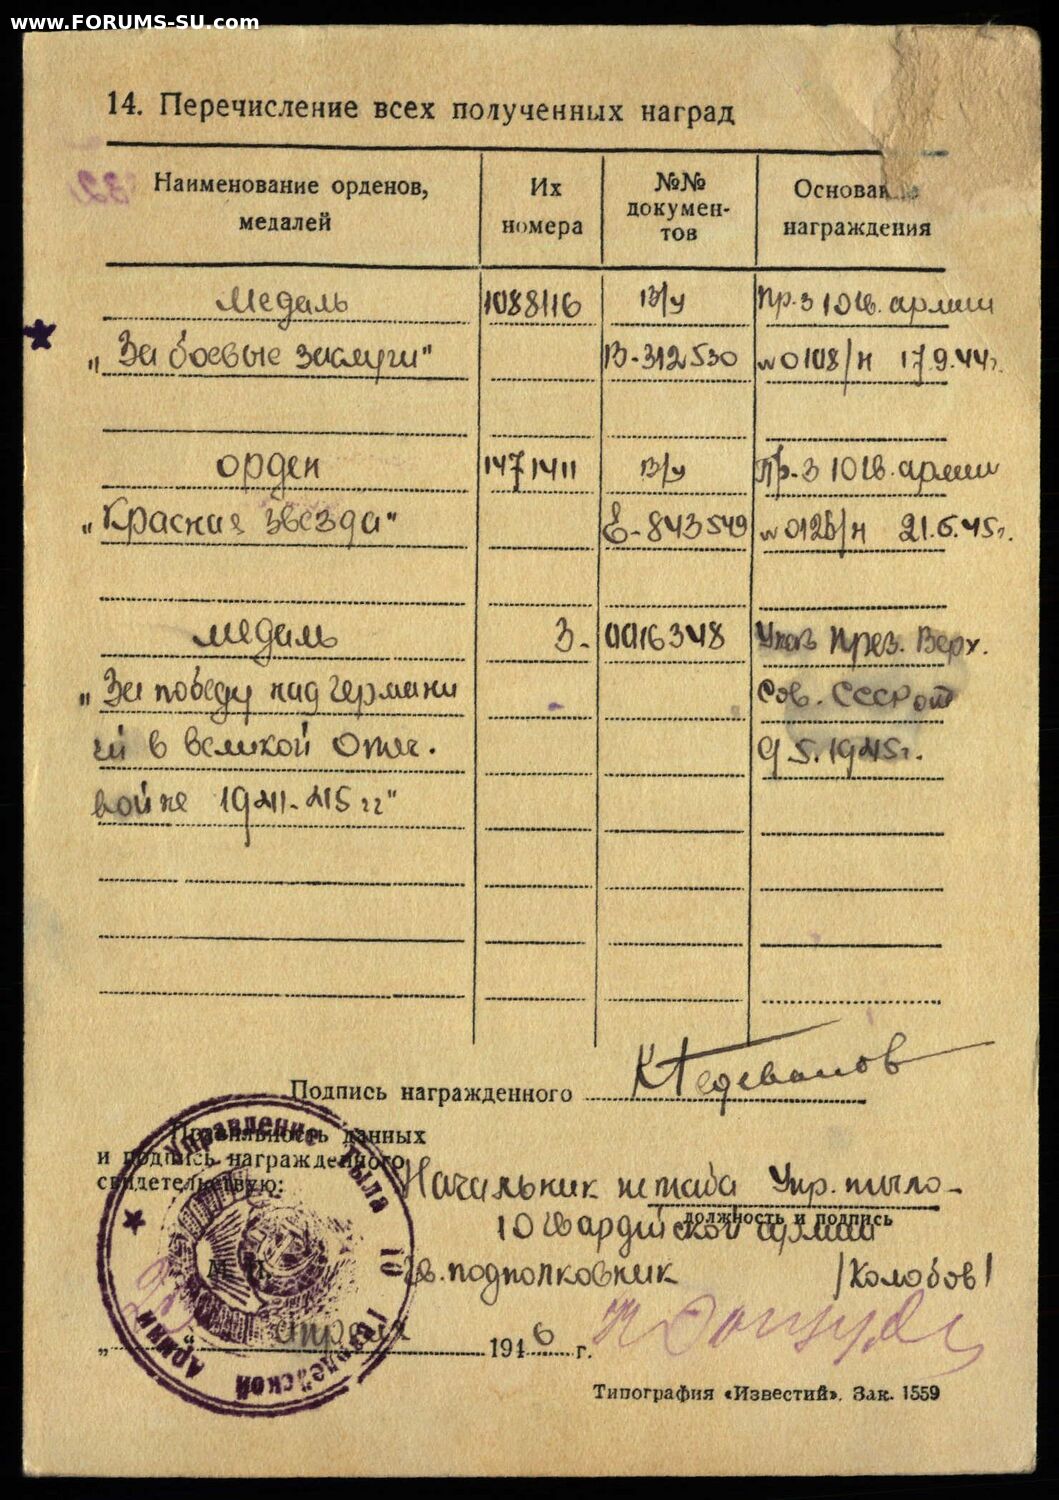 www.FORUMS-SU.com
14. Перечисление всех полученных наград
Наименование орденов, медалей
Их номера
№№ докумен-тов
Основание награждения
Медаль 1088116 В/у Пр-з 10 гв. армии
„За боевые заслуги" В-312530 №0108/н 17.9.44г.
орден 1471411 В/у Пр-з 10 гв. армии
„Красная звезда" Е-843549 №0126/н 21.6.45г.
медаль З- 0016348 Указ През. Верх.
„За победу над Германи Сов. СССР от
ей в великой Отеч. 9.5.1945г.
войне 1941-45 гг"
Подпись награжденного
Правильность данных
и подпись награжденного
свидетельствую:
Начальник штаба Упр. тыла
должность и подпись
10 гвардейской армии
М. П.
Гв. подполковник /Холобов/
„ апреля 1946 г.
Управление Тыла 10 Гвардейской Армии
Типография «Известий». Зак. 1559